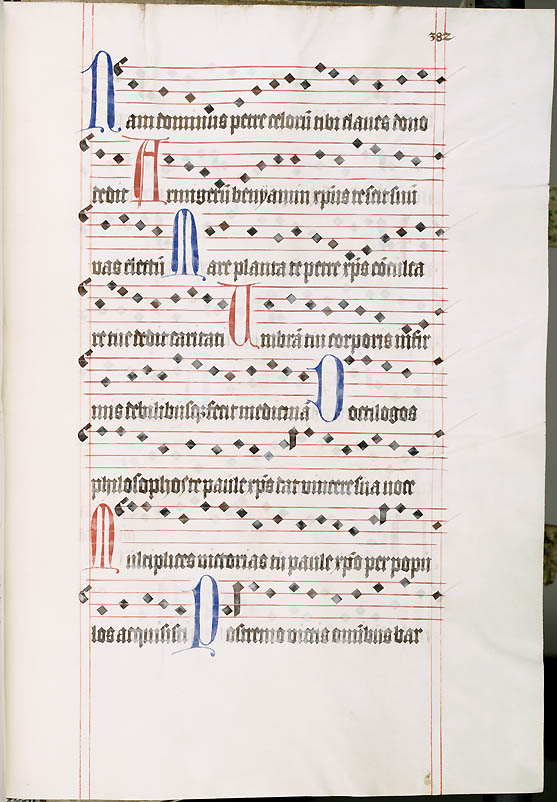 382
Nam dominus petre celorũ tibi claues dono
dedit Armigerũ benyamin xp̃us te scit suũ
vas electũ Mare planta te petre xp̃s cõculca
re tue dedit caritati Umbrã tui corporis infir
mis debilibusqꝫ fecit medicinã Doctilogos
philosophos te paule xp̃s dat vincere sua uoce
Multiplices victorias tu paule xp̃o per popu
los acquisisti Postremo victis omĩbus bar